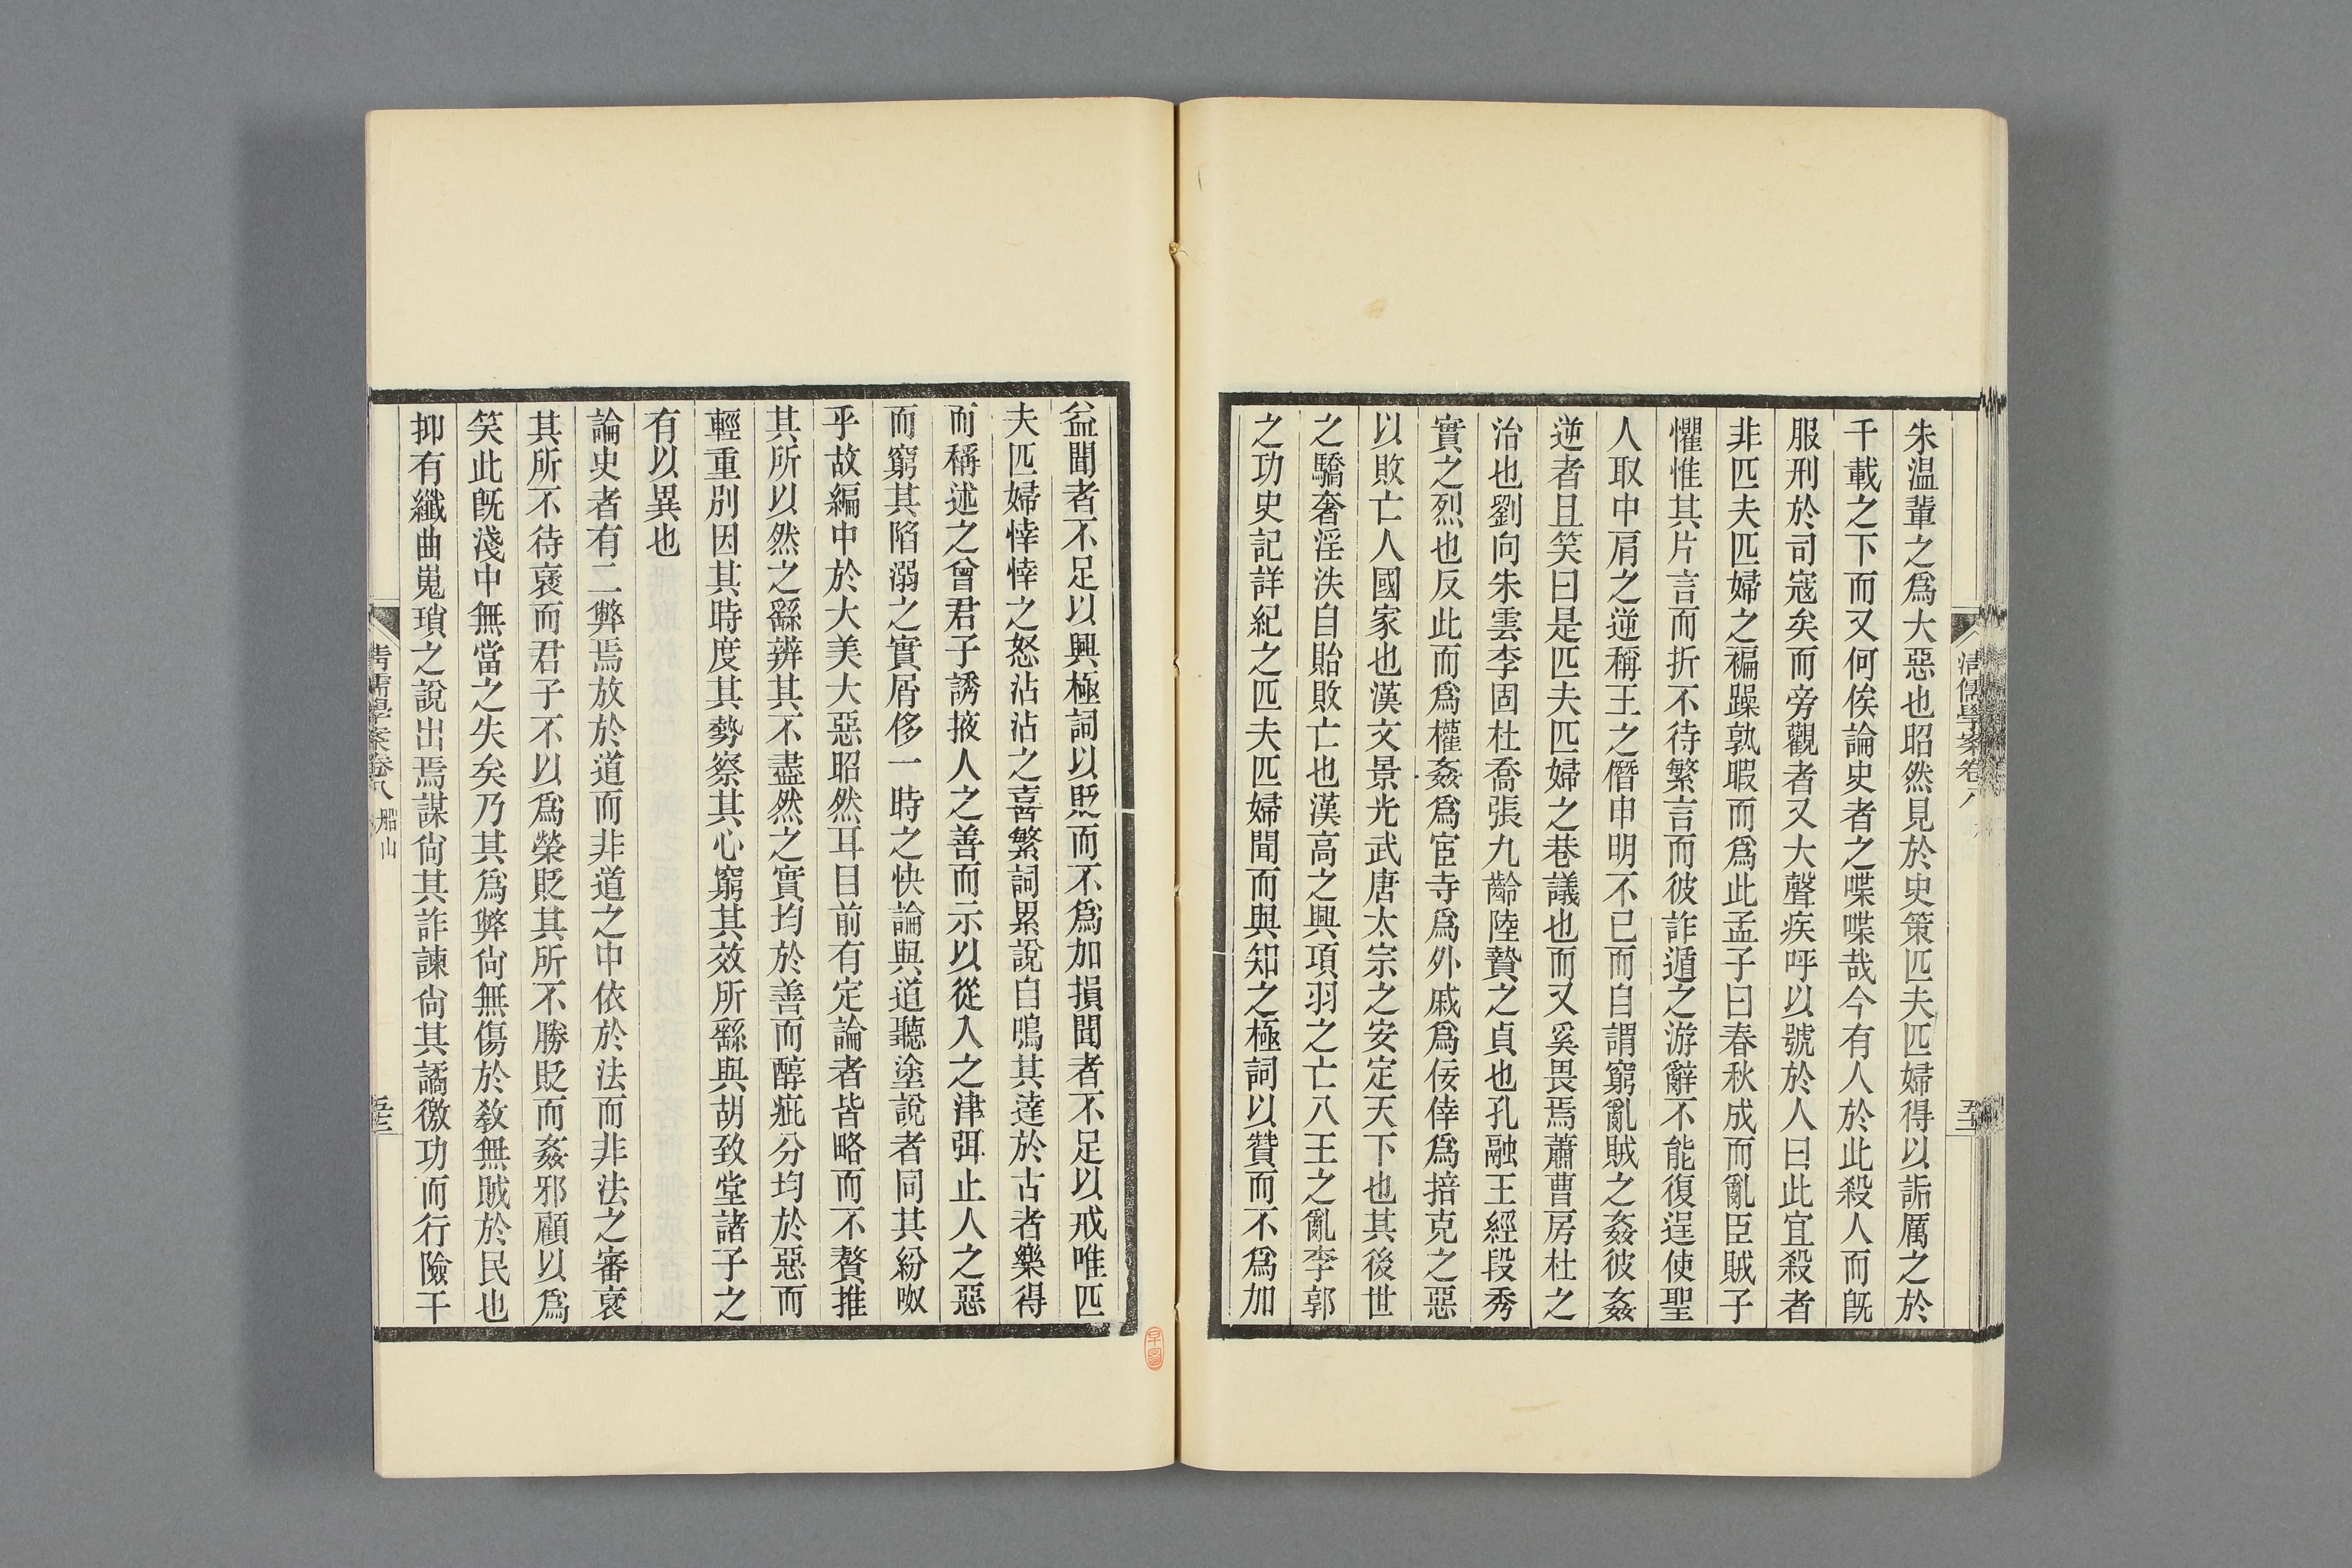 朱温輩之爲大惡也昭然見於史策匹夫匹婦得以詬厲之於
千載之下而又何俟論史者之喋喋哉今有人於此殺人而旣
服刑於司寇矣而旁觀者又大聲疾呼以號於人曰此宜殺者
非匹夫匹婦之褊躁孰暇而爲此孟子曰春秋成而亂臣賊子
懼惟其片言而折不待繁言而彼詐遁之游辭不能復逞使聖
人取中肩之逆稱王之僭申明不已而自謂窮亂賊之姦彼姦
逆者且笑曰是匹夫匹婦之巷議也而又奚畏焉蕭曹房杜之
治也劉向朱雲李固杜喬張九齡陸贄之貞也孔融王經段秀
實之烈也反此而爲權姦爲宦寺爲外戚爲佞倖爲掊克之惡
以敗亡人國家也漢文景光武唐太宗之安定天下也其後世
之驕奢淫泆自貽敗亡也漢高之興項羽之亡八王之亂李郭
之功史記詳紀之匹夫匹婦聞而與知之極詞以贊而不爲加
益聞者不足以興極詞以貶而不爲加損聞者不足以戒唯匹
夫匹婦悻悻之怒沾沾之喜繁詞累說自鳴其達於古者樂得
而稱述之曾君子誘掖人之善而示以從入之津弭止人之惡
而窮其陷溺之實屑侈一時之快論與道聽塗說者同其紛呶
乎故編中於大美大惡昭然耳目前有定論者皆略而不贅推
其所以然之繇辨其不盡然之實均於善而醇疵分均於惡而
輕重別因其時度其勢察其心窮其效所繇與胡致堂諸子之
有以異也
論史者有二弊焉放於道而非道之中依於法而非法之審褒
其所不待褒而君子不以爲榮貶其所不勝貶而姦邪顧以爲
笑此旣淺中無當之失矣乃其爲弊尙無傷於敎無賊於民也
抑有纖曲嵬瑣之說出焉謀尙其詐諫尙其譎徼功而行險干
清儒學案卷八
清儒學案卷八 船山